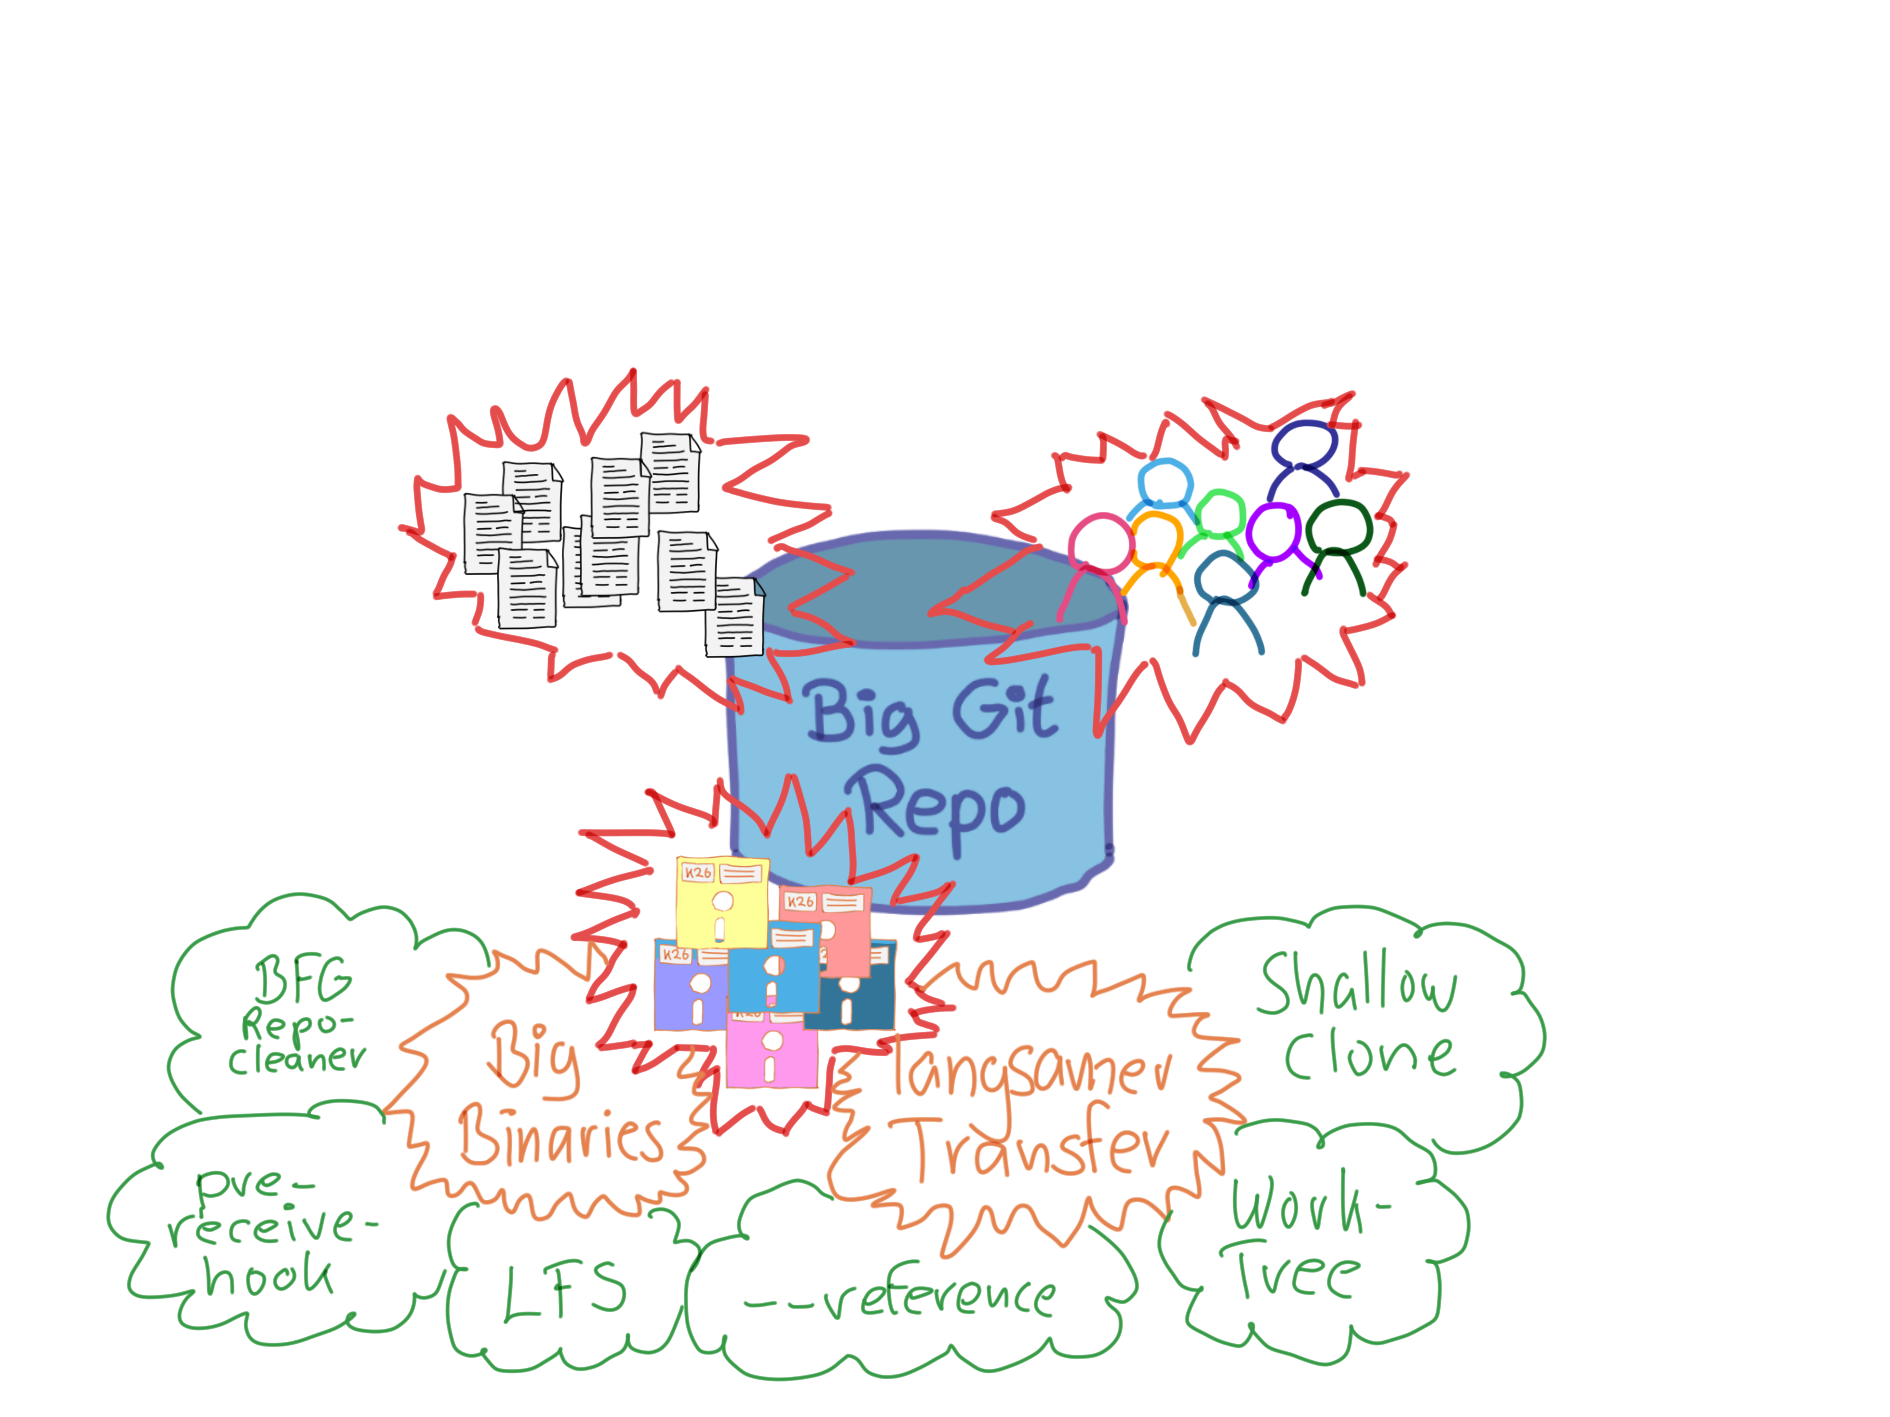 Big Git
Repo
K26
K26
K26
K26
BFG
Repo-
cleaner
Big
Binaries
langsamer
Transfer
Shallow
Clone
pre-
receive-
hook
LFS
--reference
Work-
Tree